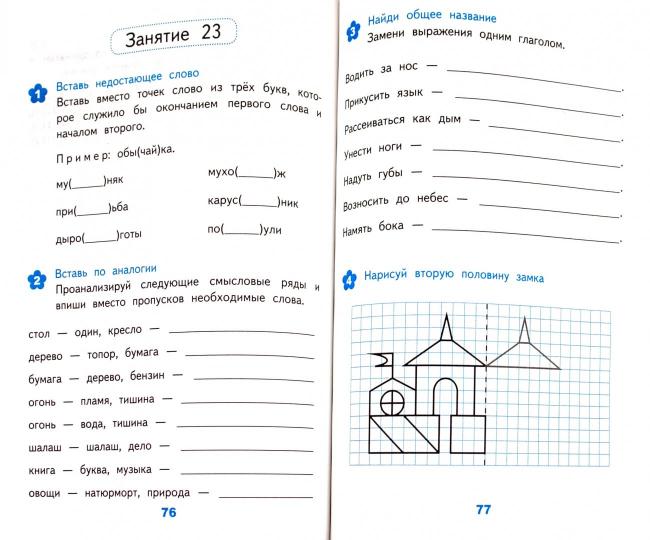 Занятие 23
1 Вставь недостающее слово
Вставь вместо точек слово из трёх букв, кото-
рое служило бы окончанием первого слова и
началом второго.
Пример: обы(чай)ка.
му(______)няк
мухо(______)ж
при(______)ьба
карус(______)ник
дыро(______)готы
по(______)ули
2 Вставь по аналогии
Проанализируй следующие смысловые ряды и
впиши вместо пропусков необходимые слова.
стол — один, кресло —
дерево — топор, бумага —
бумага — дерево, бензин —
огонь — пламя, тишина —
огонь — вода, тишина —
шалаш — шалаш, дело —
книга — буква, музыка —
овощи — натюрморт, природа —
76
3 Найди общее название
Замени выражения одним глаголом.
Водить за нос — .
Прикусить язык — .
Рассеиваться как дым — .
Унести ноги — .
Надуть губы — .
Возносить до небес — .
Намять бока — .
4 Нарисуй вторую половину замка
77